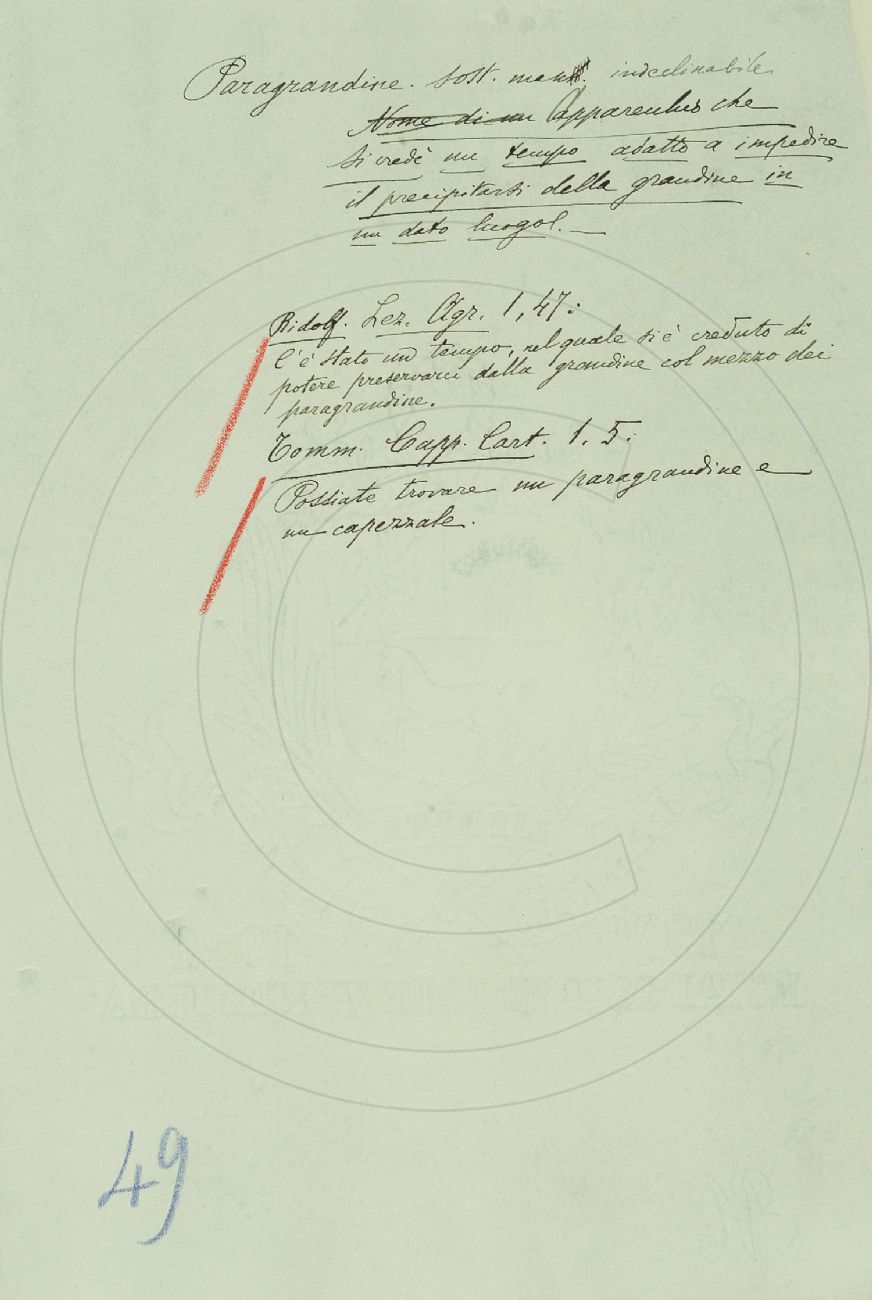 Paragrandine. Sost. masc. indeclinabile.
Nome di un Apparecchio che
si credè un tempo adatto a impedire
il precipitarsi della grandine in
un dato luogo.
Ridolf. Lez. Agr. 1, 47:
C'è stato un tempo, nel quale si è creduto di
potere preservarci dalla grandine col mezzo dei
paragrandine.
Tomm. Capp. Cart. 1. 5:
Possiate trovare un paragrandine e
un capezzale.
49